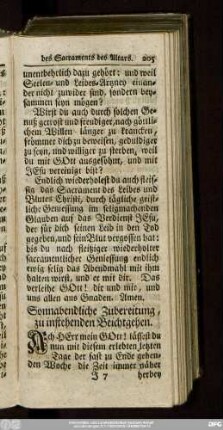 des Sacraments des Altars. 205
unentbehrlich dazu gehört: und weil
Seelen- und Leibes-Artzney einan-
der nicht zuwider sind, sondern bey-
sammen seyn mögen?
Wirst du auch durch solchen Ge-
nuß getrost und freudiger, nach gött-
lichem Willen länger zu krancken,
frömmer dich zu beweisen, gedultiger
zu seyn, und williger zu sterben, weil
du mit GOtt ausgesöhnt, und mit
JEsu vereinigt bist?
Endlich wiederholest du auch fleis-
sig das Sacrament des Leibes und
Blutes Christi, durch tägliche geist-
liche Geniessung im seligmachenden
Glauben auf das Verdienst JEsu,
der für dich seinen Leib in den Tod
gegeben, und sein Blut vergossen hat:
bis du nach fleißiger wiederholter
sacramentlicher Geniessung endlich
ewig selig das Abendmahl mit ihm
halten wirst, und er mit dir. Das
verleihe GOtt! dir und mir, und
uns allen aus Gnaden. Amen.
Sonnabendliche Zubereitung,
zu instehenden Beichtgehen.
Ach HErr mein GOtt! lässest du
nun mit diesem erlebten letzten
Tage der fast zu Ende gehen-
den Woche die Zeit immer näher
J 7 herbey